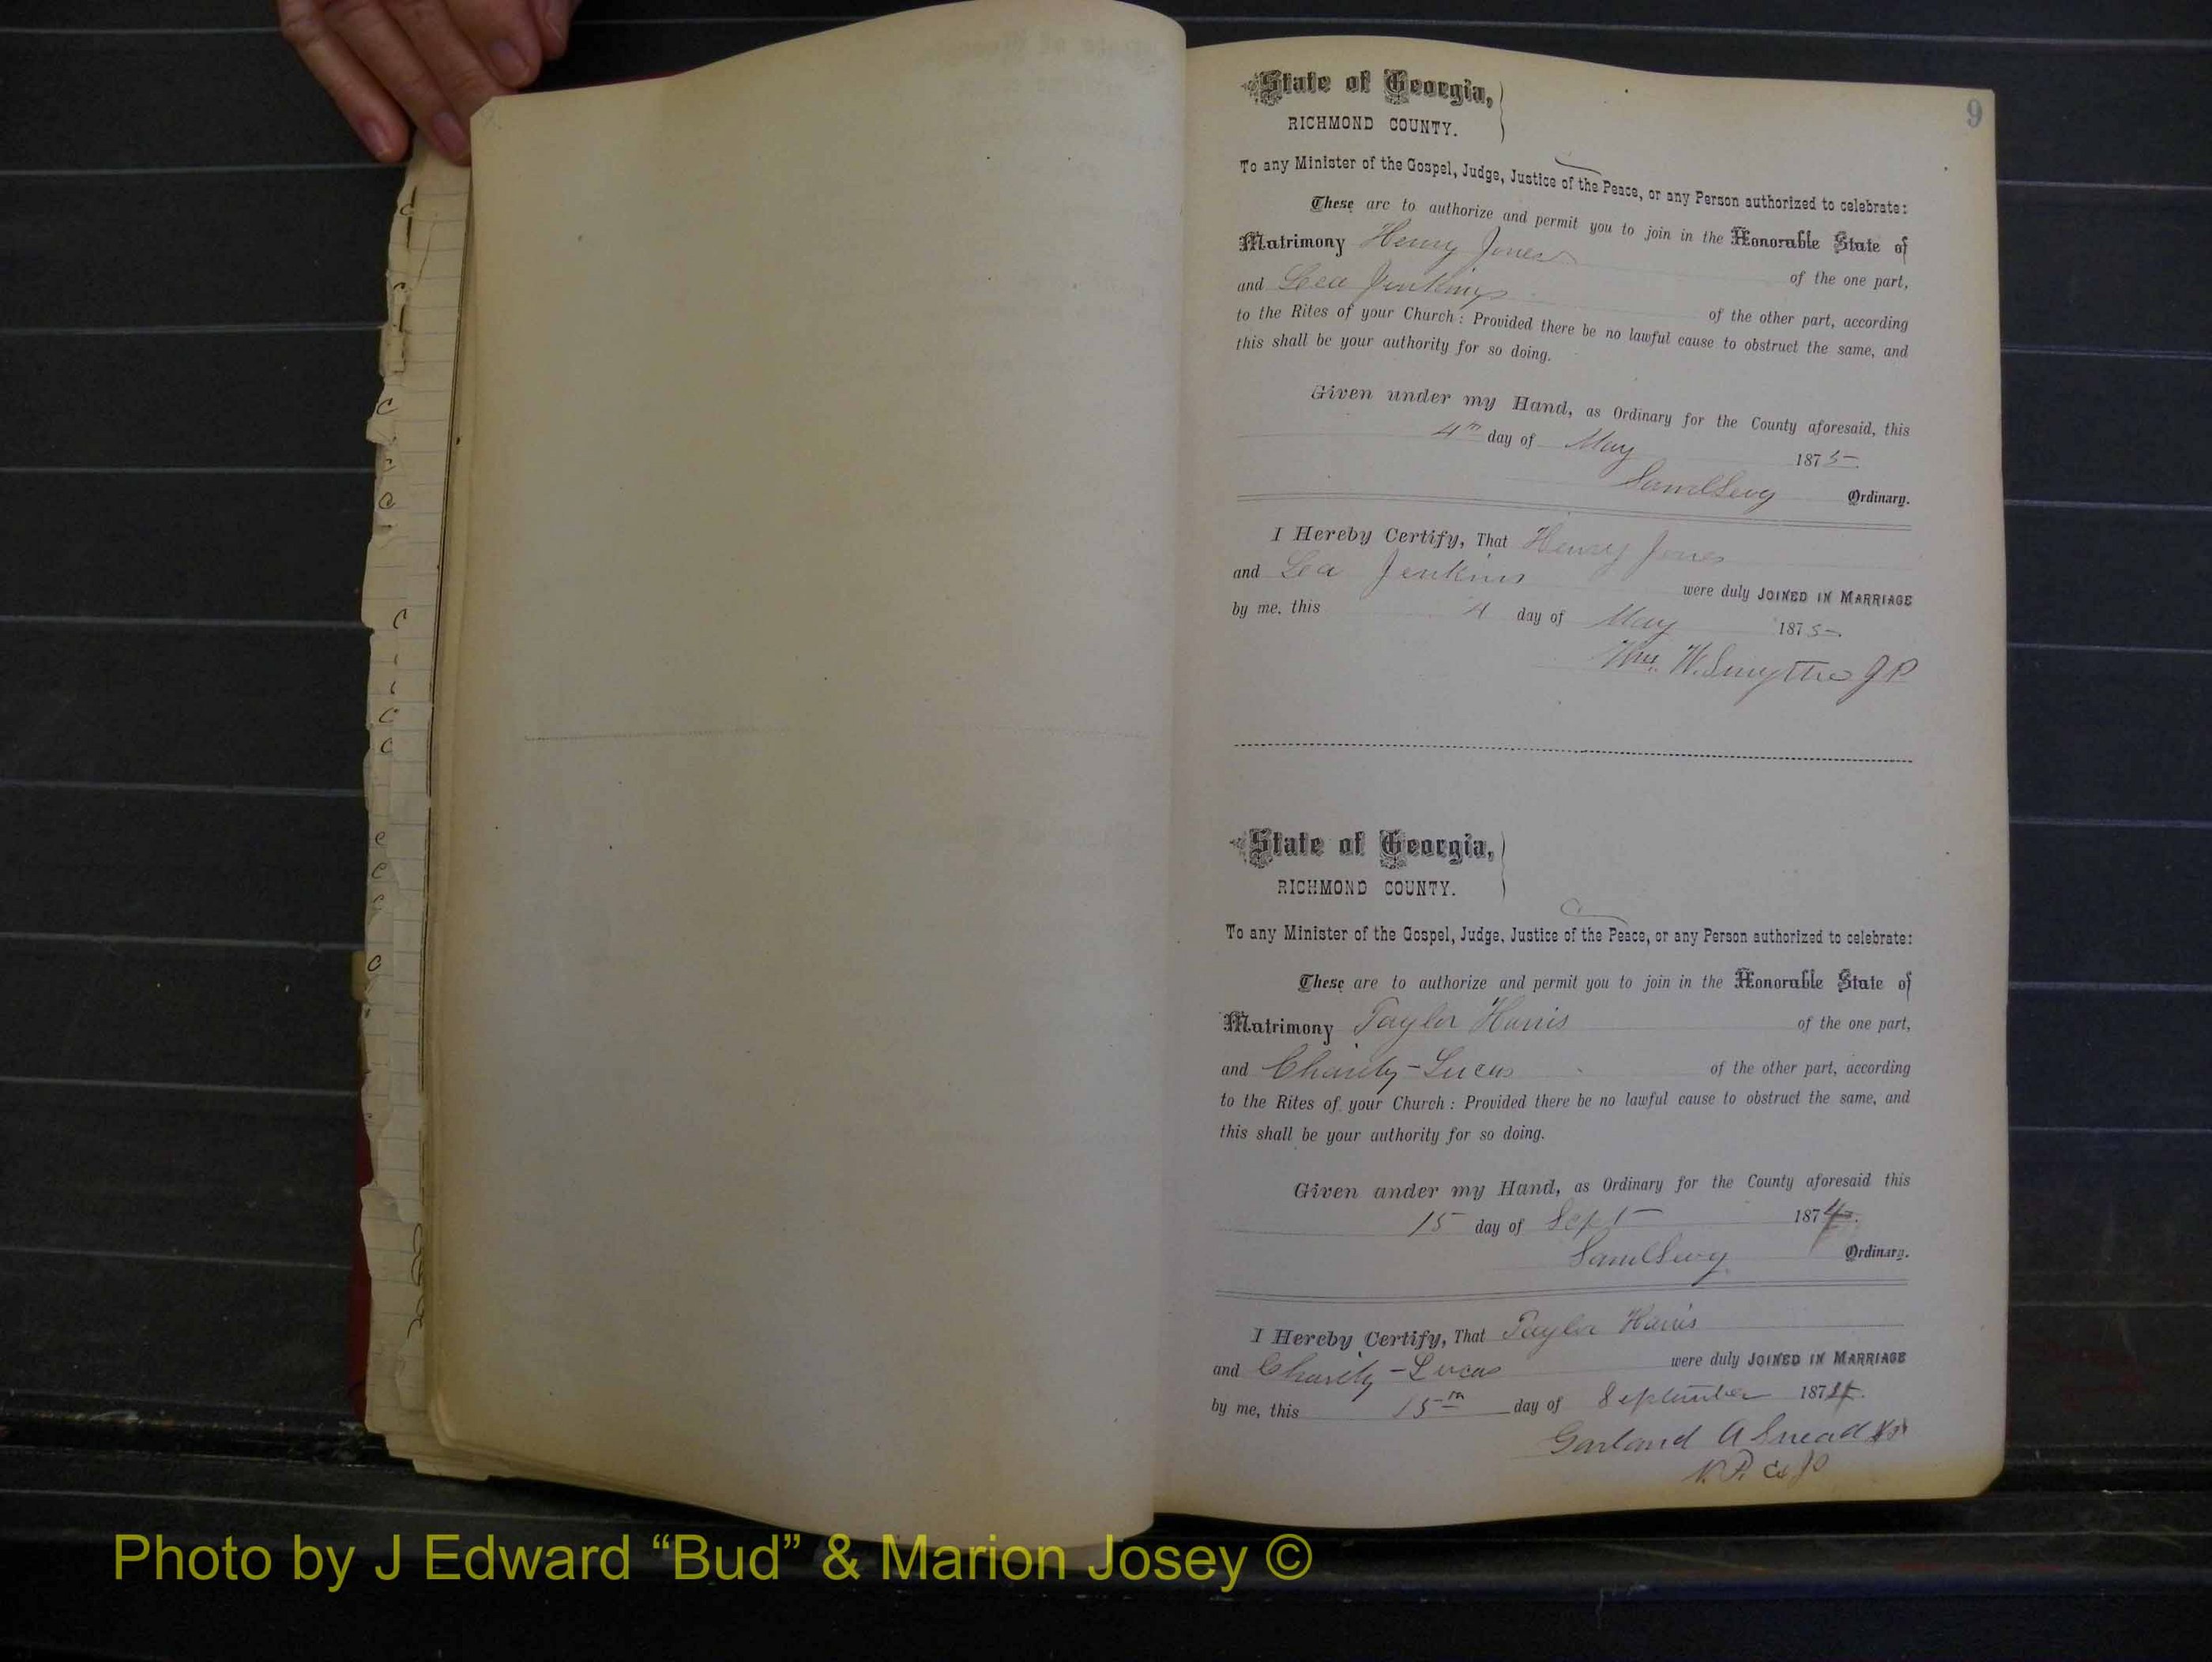 9
State of Georgia,
RICHMOND COUNTY.
To any Minister of the Gospel, Judge, Justice of the Peace, or any Person authorized to celebrate:
These are to authorize and permit you to join in the Honorable State of
Matrimony Henry Jones of the one part,
and Lea Jenkins of the other part, according
to the Rites of your Church: Provided there be no lawful cause to obstruct the same, and
this shall be your authority for so doing.
Given under my Hand, as Ordinary for the County aforesaid, this
4th day of May 1875.
Saml Levy Ordinary.
I Hereby Certify, That Henry Jones
and Lea Jenkins were duly JOINED IN MARRIAGE
by me, this 4 day of May 1875
Wm. W. Smythe J P
State of Georgia,
RICHMOND COUNTY.
To any Minister of the Gospel, Judge, Justice of the Peace, or any Person authorized to celebrate:
These are to authorize and permit you to join in the Honorable State of
Matrimony Taylor Harris of the one part,
and Charity-Lucas of the other part, according
to the Rites of your Church: Provided there be no lawful cause to obstruct the same, and
this shall be your authority for so doing.
Given under my Hand, as Ordinary for the County aforesaid this
15 day of Sept 1874.
Saml Levy Ordinary.
I Hereby Certify, That Taylor Harris
and Charity-Lucas were duly JOINED IN MARRIAGE
by me, this 15th day of September 1874.
Garland A Snead
N.P. Ex JP
Photo by J Edward “Bud” & Marion Josey ©